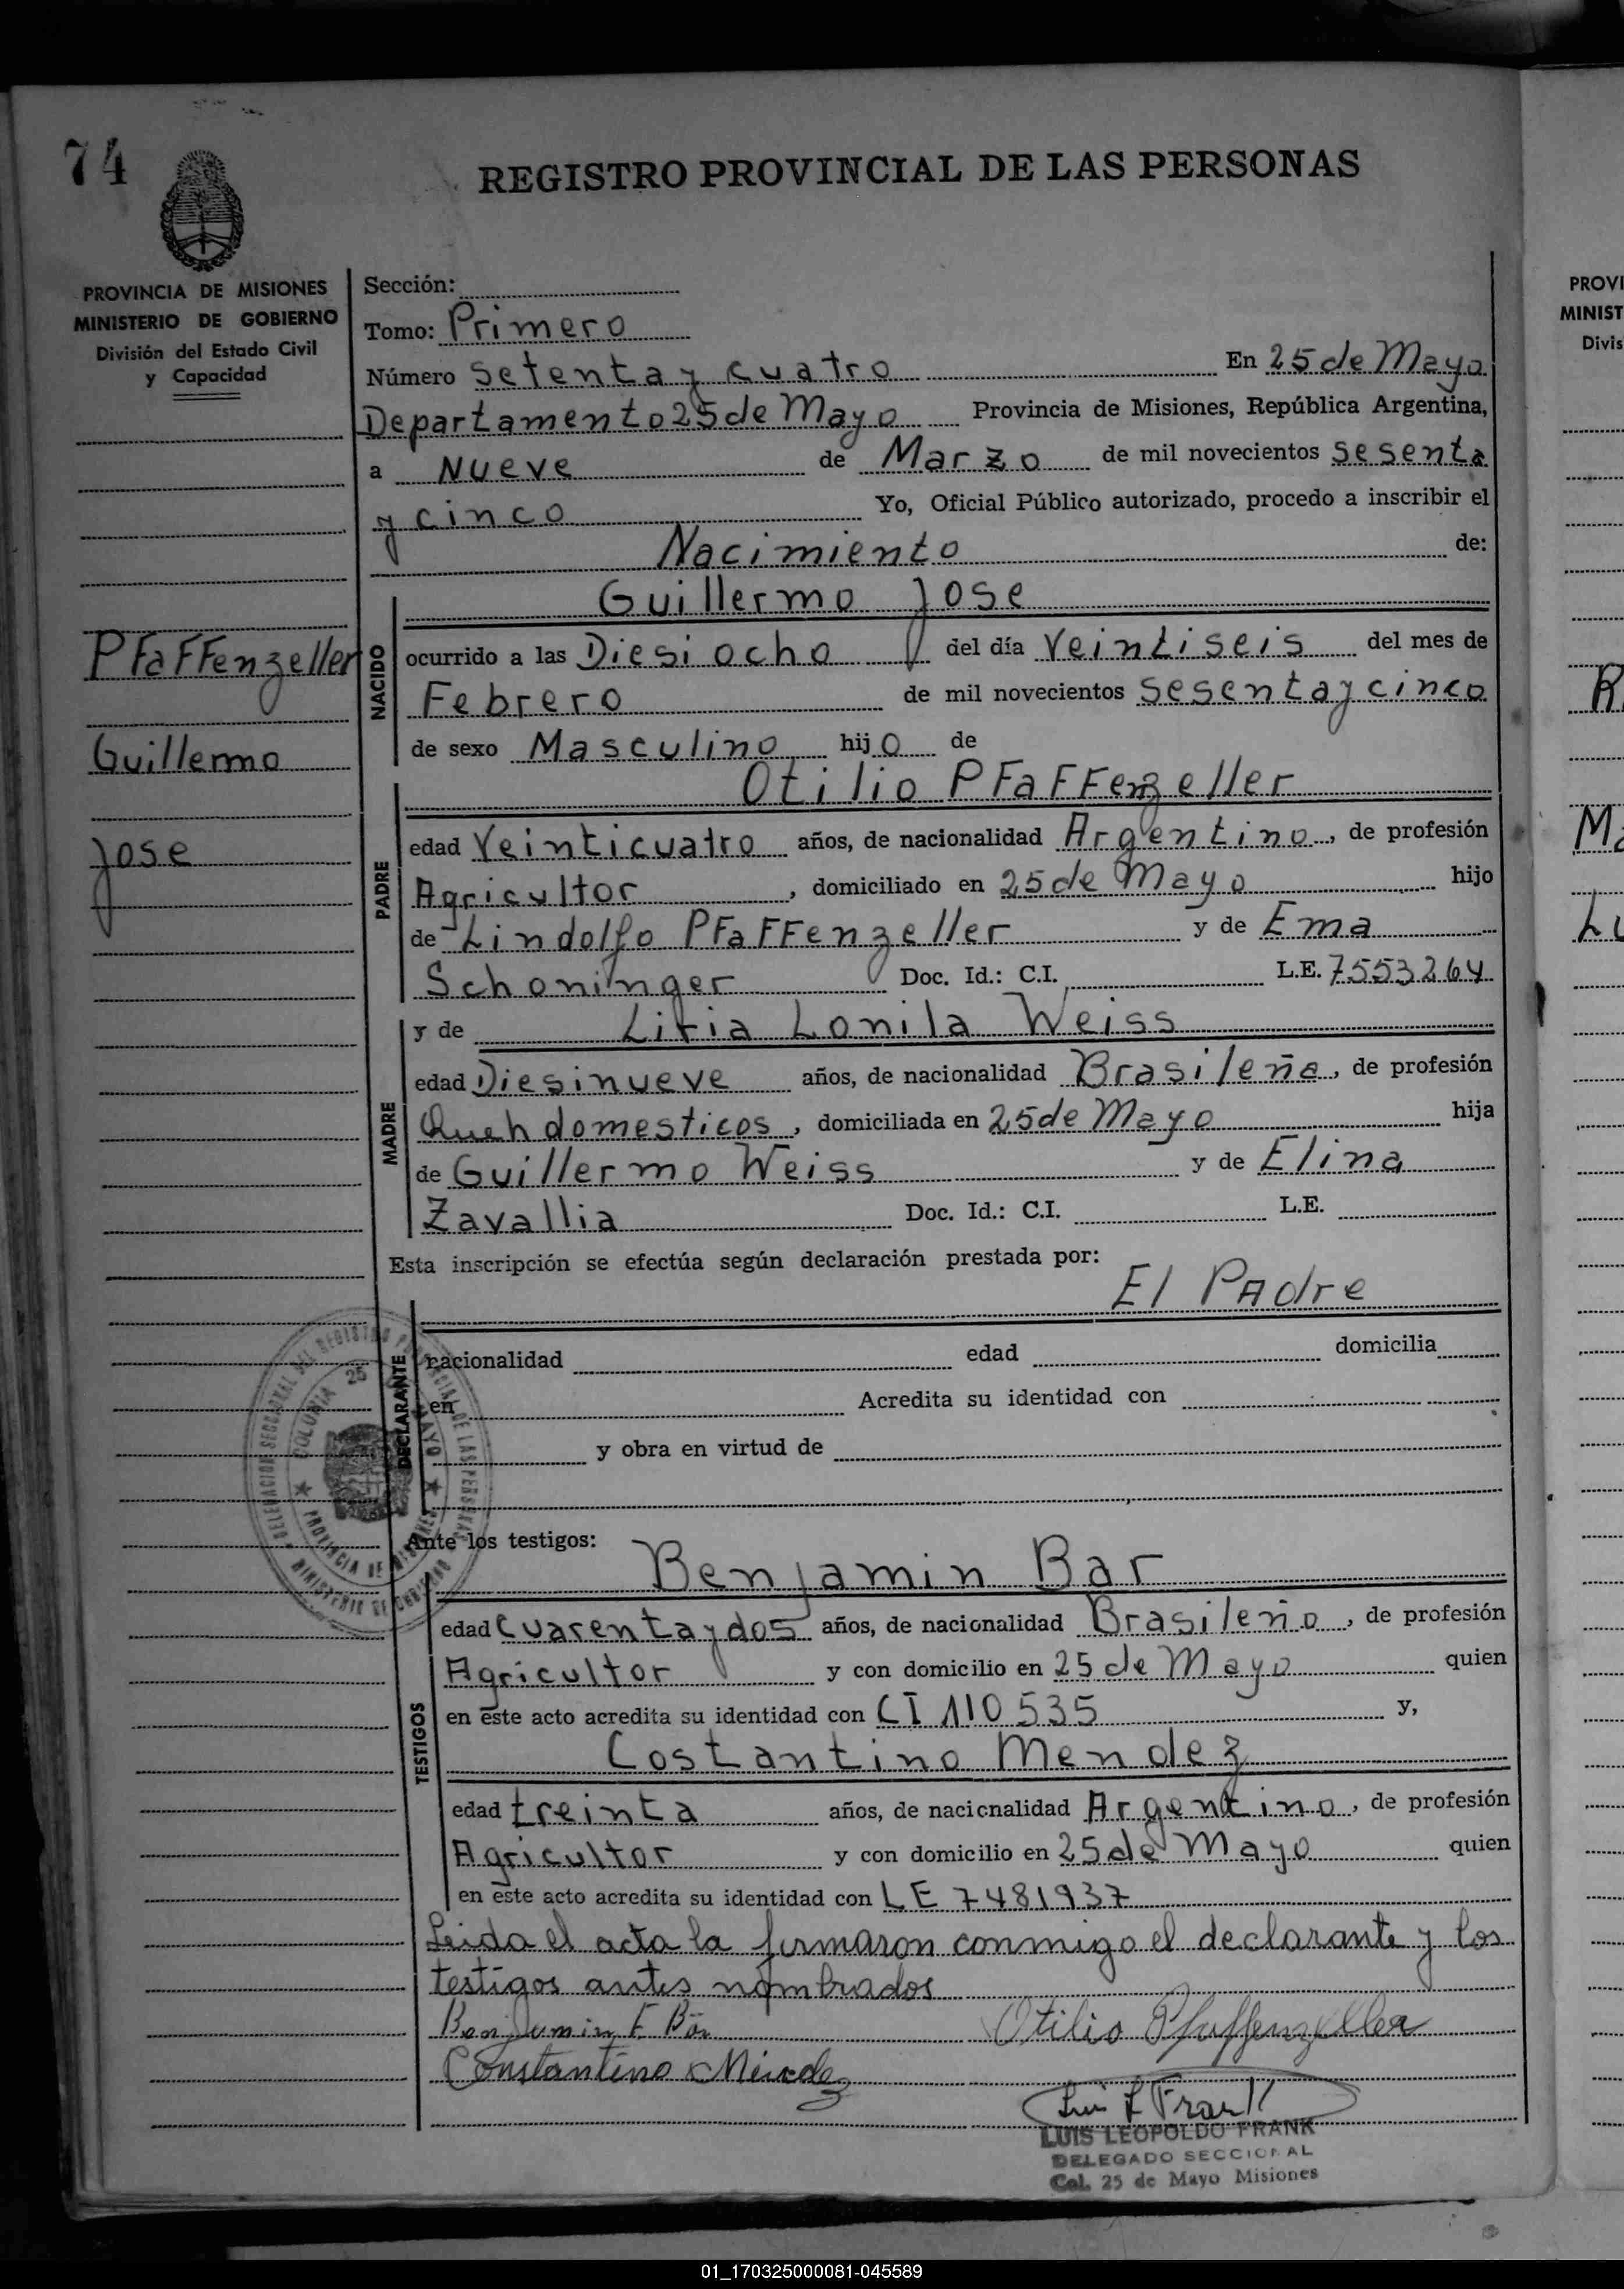 74
REGISTRO PROVINCIAL DE LAS PERSONAS
PROVINCIA DE MISIONES
MINISTERIO DE GOBIERNO
División del Estado Civil
y Capacidad
Pfaffenzeller
Guillermo
Jose
Sección:
Tomo: Primero
Número Setenta y cuatro En 25 de Mayo
Departamento 25 de Mayo Provincia de Misiones, República Argentina,
a Nueve de Marzo de mil novecientos Sesenta
y cinco Yo, Oficial Público autorizado, procedo a inscribir el
Nacimiento de:
Guillermo Jose
NACIDO
ocurrido a las Diesi ocho del día Veintiseis del mes de
Febrero de mil novecientos Sesenta y cinco
de sexo Masculino hijo de
Otilio Pfaffenzeller
PADRE
edad Veinticuatro años, de nacionalidad Argentino, de profesión
Agricultor, domiciliado en 25 de Mayo hijo
de Lindolfo Pfaffenzeller y de Ema
Schoninger Doc. Id.: C.I. L.E. 7553264
y de Liria Lonila Weiss
MADRE
edad Diesinueve años, de nacionalidad Brasileña, de profesión
domesticos, domiciliada en 25 de Mayo hija
de Guillermo Weiss y de Elina
Zavallia Doc. Id.: C.I. L.E.
Esta inscripción se efectúa según declaración prestada por:
El Padre
DECLARANTE
nacionalidad edad domicilia
en Acredita su identidad con
y obra en virtud de
DELEGACION SECCIONAL DEL REGISTRO PROVINCIAL DE LAS PERSONAS
MINISTERIO DE GOBIERNO
COLONIA 25 MAYO
PROVINCIA DE MISIONES
Ante los testigos:
Benjamin Bar
TESTIGOS
edad Cuarenta y dos años, de nacionalidad Brasileño, de profesión
Agricultor y con domicilio en 25 de Mayo quien
en este acto acredita su identidad con CI 110535 y,
Costantino Mendez
edad treinta años, de nacionalidad Argentino, de profesión
Agricultor y con domicilio en 25 de Mayo quien
en este acto acredita su identidad con LE 7481937
Leida el acta la firmaron conmigo el declarante y los
testigos antes nombrados
Benjamin F Bär Otilio Pfaffenzeller
Constantino Mendez
Luis L Frank
LUIS LEOPOLDO FRANK
DELEGADO SECCIONAL
Col. 25 de Mayo Misiones
PROVI
MINIST
Divis
R
Ma
Lu
01_170325000081-045589